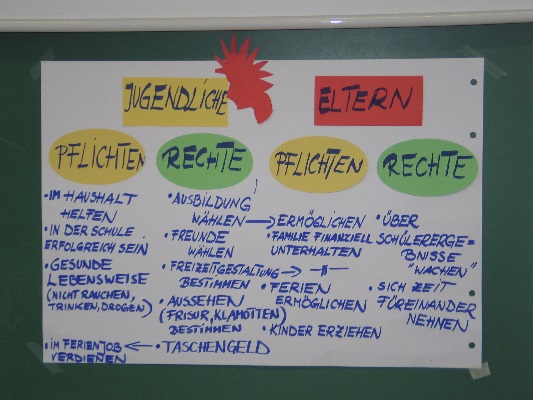 JUGENDLICHE
ELTERN
PFLICHTEN
RECHTE
PFLICHTEN
RECHTE
• IM HAUSHALT
HELFEN
• IN DER SCHULE
ERFOLGREICH SEIN
• GESUNDE
LEBENSWEISE
(NICHT RAUCHEN,
TRINKEN, DROGEN)
• IM FERIENJOB
VERDIENEN
• AUSBILDUNG
WÄHLEN →
• FREUNDE
WÄHLEN
• FREIZEITGESTALTUNG →
BESTIMMEN
• AUSSEHEN
(FRISUR, KLAMOTTEN)
BESTIMMEN
← • TASCHENGELD
ERMÖGLICHEN
• FAMILIE FINANZIELL
UNTERHALTEN
-"-
• FERIEN
ERMÖGLICHEN
• KINDER ERZIEHEN
• ÜBER
SCHÜLERERGE=
BNISSE
"WACHEN"
• SICH ZEIT
FÜREINANDER
NEHNEN